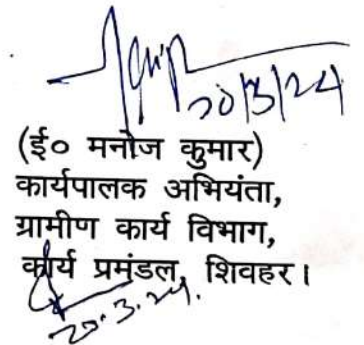 20/3/24
(ई० मनोज कुमार)
कार्यपालक अभियंता,
ग्रामीण कार्य विभाग,
कार्य प्रमंडल, शिवहर।
20.3.24.